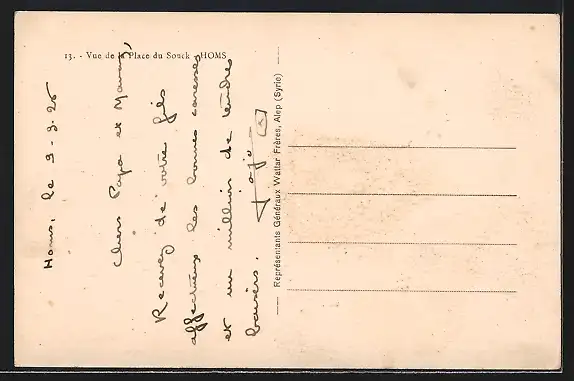 13. - Vue de la Place du Souck - HOMS
Homs, le 3-3-25
Chers Papa et Maman,
Recevez de votre fils
affectueux les bonnes caresses
et un million de tendres
baisers.
Représentants Généraux Wattar Frères, Alep (Syrie)